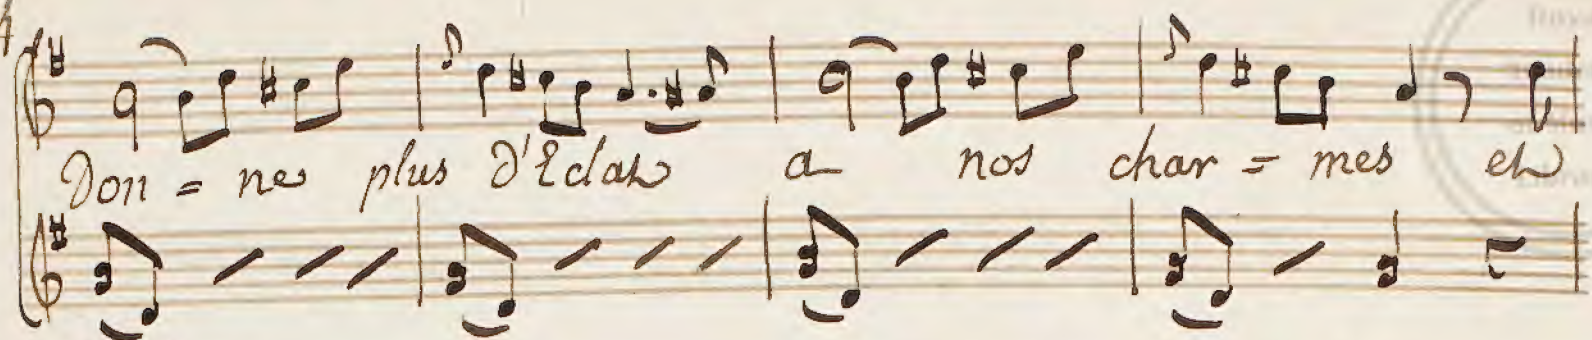 4
Don = ne plus d'Eclat a nos char = mes et